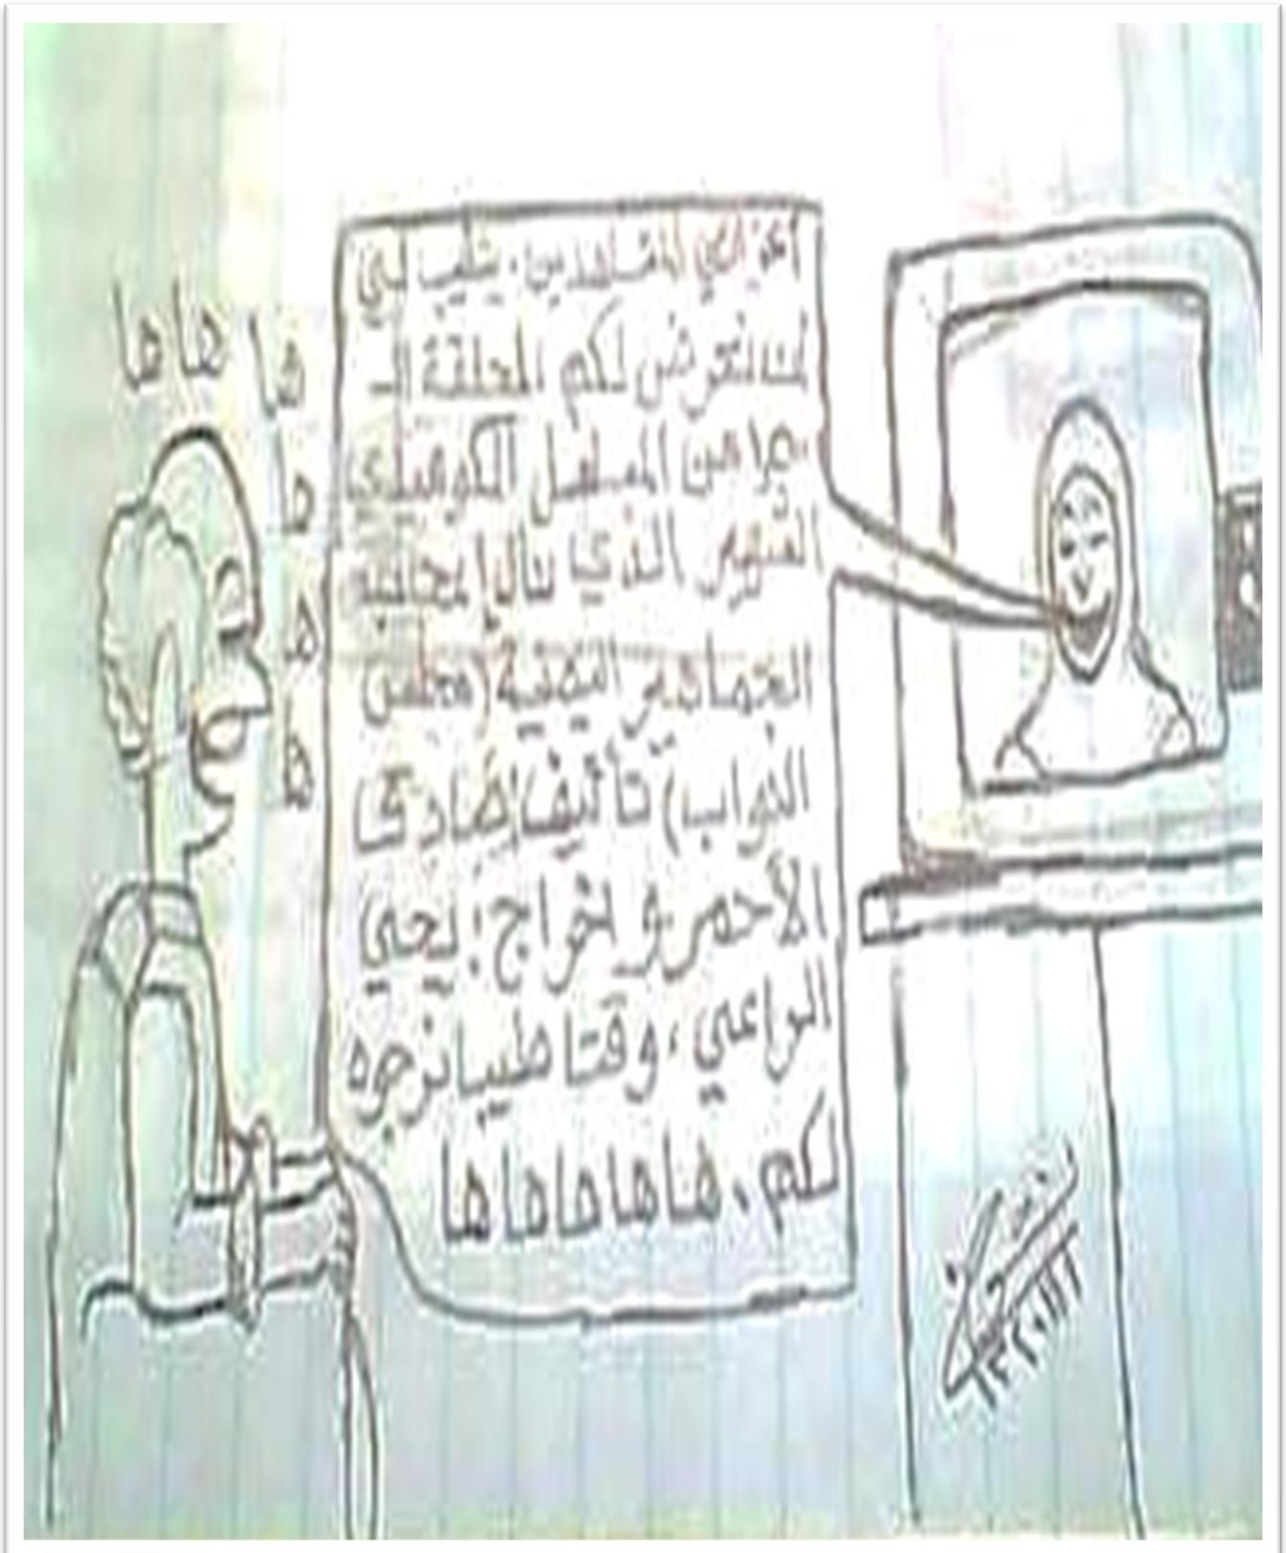 أعزائي المشاهدين، يطيب لي
أن نعرض لكم الحلقة الـ
من المسلسل الكوميدي
الشهير الذي نال إعجاب
الجماهير اليمنية (مجلس
النواب) تأليف/صادق
الأحمر وإخراج: يحيى
الراعي، وقتا طيبا نرجوه
لكم، هاهاهاهاهاها
ها ها ها
ها
ها
ها